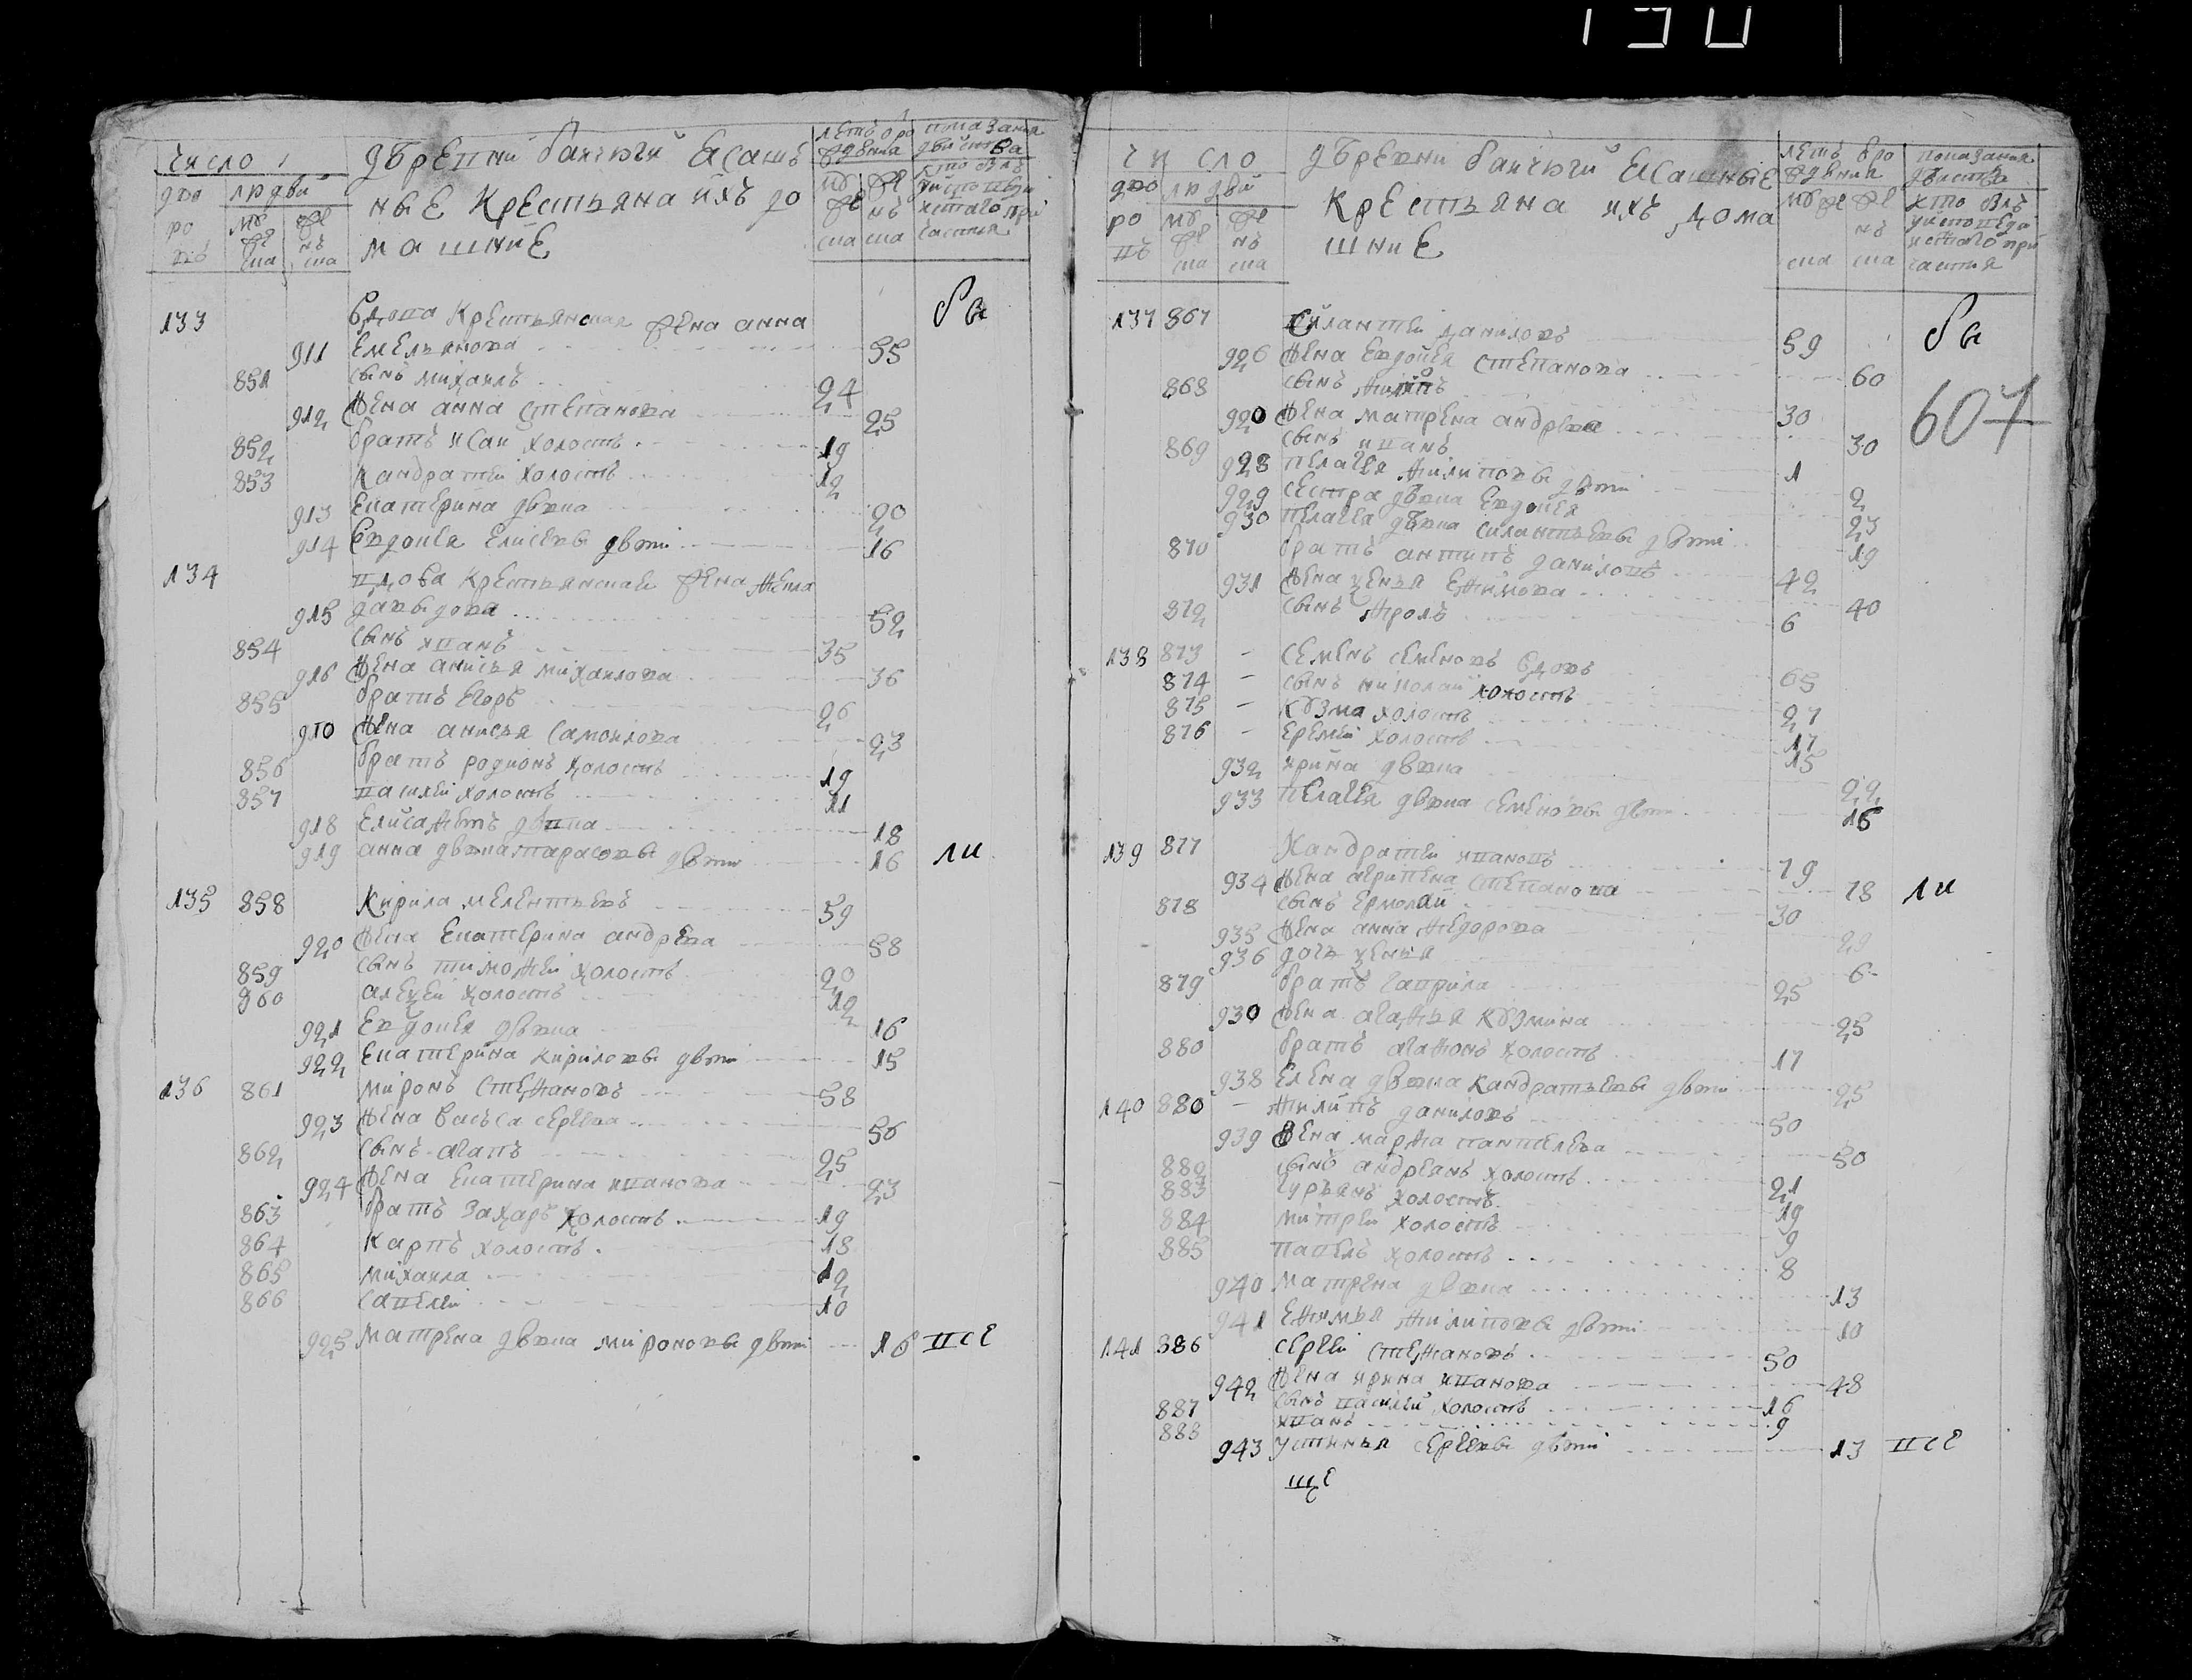 130
число
дво
ро
въ
людей
мꙋ
же
ска
же
нъ
ска
дѣревни байчюги ясаш
ные крестьяна ихъ до
машние
летъ о ро
ждения
мꙋ
же
ска
же
нъ
ска
показания
действа
кто былъ
у исповеди
и стаго при
частия
133 вдова крестьянская жена анна бы
911 емельянова 55
851 сынъ михаилъ 24
912 жена анна степанова 25
852 братъ исаи холостъ 19
853 кандратеи холостъ 12
913 екатерина дѣвка 20
914 евдокея елисеевы дѣти 16
134 вдова крестьянская жена фекла
915 давыдова 52
854 сынъ иванъ 35
916 жена анисья михаилова 36
855 братъ егоръ 26
910 жена анисья самоилова 23
856 братъ родионъ холостъ 19
857 василеи холостъ 11
918 елисафетъ дѣвка 18
919 анна дѣвка тарасовы дѣти 16 ли
135 858 кирила мелентьевъ 59
920 жена екатерина андрева 58
859 сынъ тимофеи холостъ 20
960 алеѯеи холостъ 12
921 евдокея дѣвка 16
922 екатерина кириловы дѣти 15
136 861 миронъ стефановъ 58
923 жена васъса сергева 56
862 сынъ агапъ 25
924 жена екатерина иванова 23
863 братъ захаръ холостъ 19
864 карпъ холостъ 18
865 михаила 12
866 савелеи 10
925 матрена дѣвка мироновы дѣти 16 все
число
дво
ро
въ
людей
мꙋ
же
ска
же
нъ
ска
дѣревни байчюги ясашные
крестьяна ихъ дома
шние
летъ о ро
ждения
мꙋже
ска
же
нъ
ска
показания
действа
кто былъ
у исповеди
и стаго при
частия
137 867 силантеи даниловъ 59 бы
926 жена евдокея степанова 60
607
868 сынъ филипъ 30
920 жена матрена андрева 30
869 сынъ иванъ 1
928 пелагея филиповы дѣти 2
929 сестра дѣвка евдокея 23
930 пелагея дѣвка силантьевы дѣти 19
870 братъ антипъ даниловъ 42
931 жена ѯенья ефимова 40
872 сынъ фролъ 6
138 873 - семенъ семеновъ вдовъ 65
874 - сынъ николаи холостъ 27
875 - кꙋзма холостъ 17
876 - еремеи холостъ 15
932 ирина дѣвка 22
933 пелагея дѣвка семеновы дѣти 16
139 877 кандратеи ивановъ 79
934 жена агрипена степанова 78 ли
878 сынъ ермолаи 30
935 жена анна федорова 29
936 дочь ѯенья 6
879 братъ гаврила 25
930 жена агафья кꙋзмина 25
880 братъ агафонъ холостъ 17
938 елена дѣвка кандратьевы дѣти 25
140 880 - филипъ даниловъ 50
939 жена марфа пантелева 50
882 сынъ андреянъ холостъ 21
883 гурьянъ холостъ 19
884 митреи холостъ 9
885 павелъ холостъ 8
940 матрена дѣвка 13
941 ефимья филиповы дѣти 10
141 886 сергеи стефановъ 50
942 жена ирина иванова 48
887 сынъ василеи холостъ 16
888 иванъ 9
943 устинья сергеевы дѣти 13 все
ще